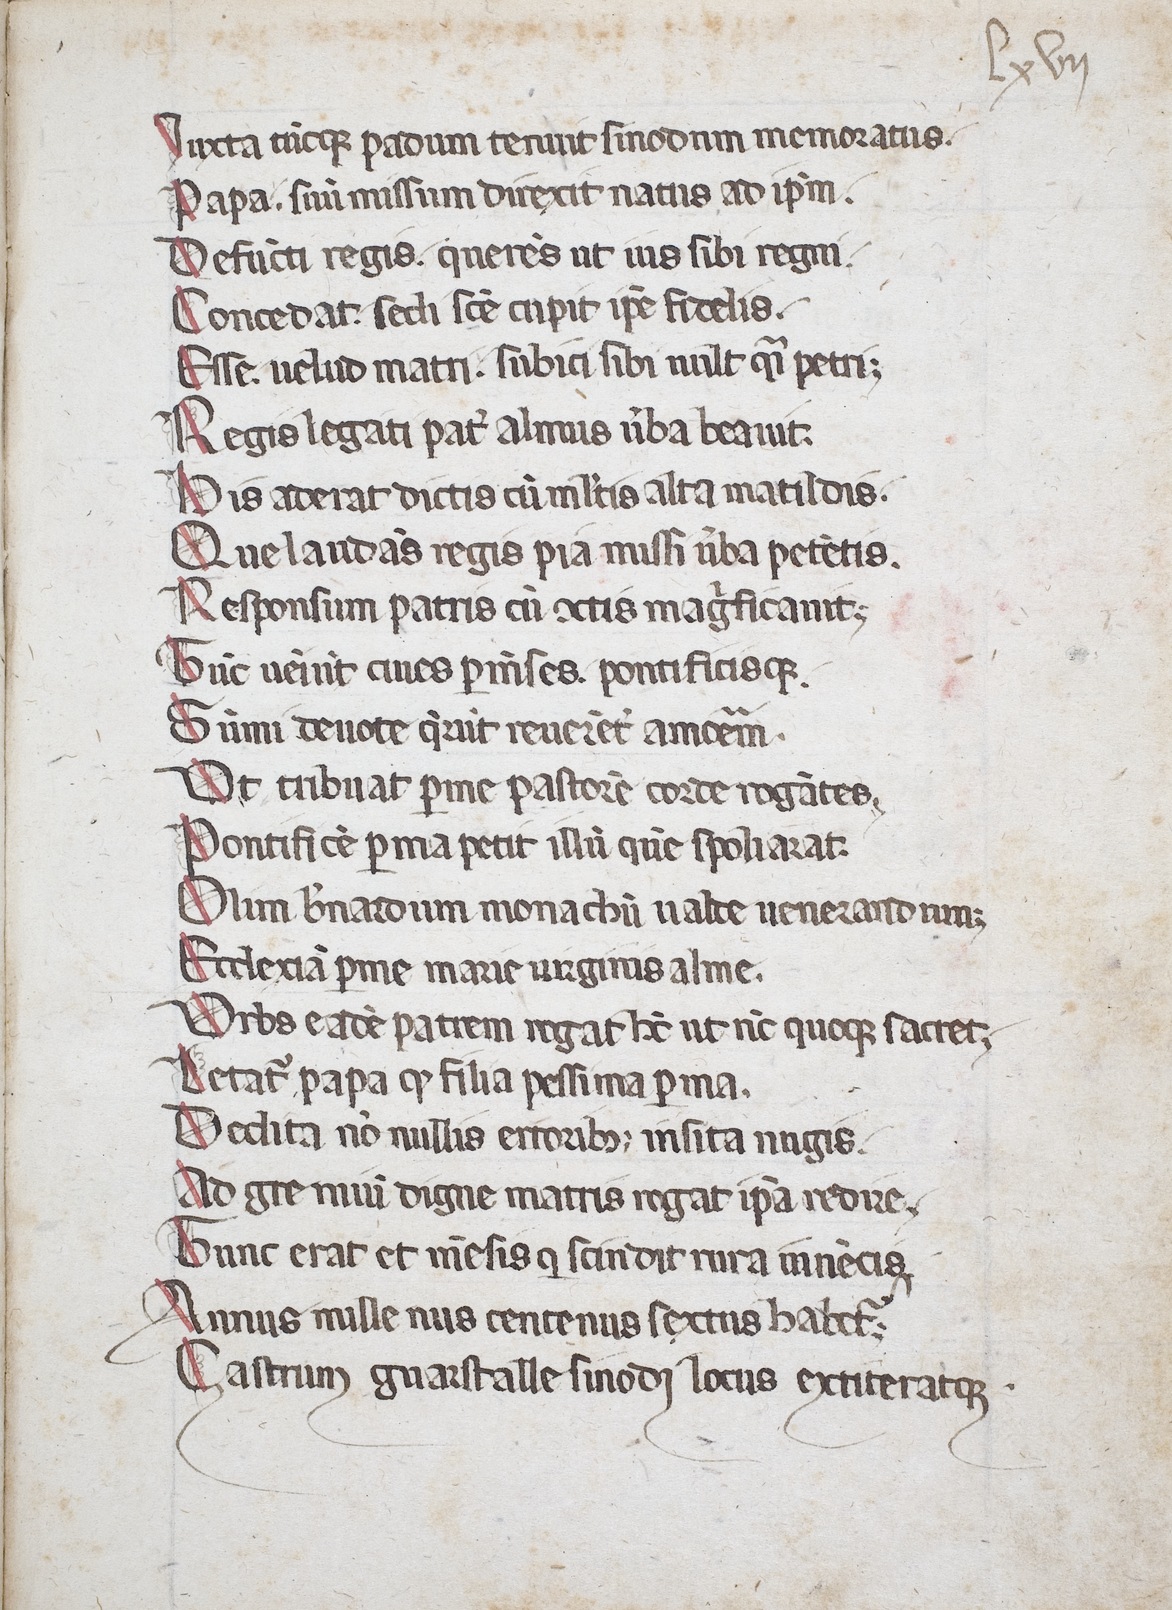 Lxvij
Iuxta tūcqꝫ padum tenuit sinodum memoratus.
Papa. suū missum direxit natus ad ip̄m.
Defūcti regis. querēs ut ius sibi regni.
Concedat. sedi sc̄e cupit ip̄e fidelis.
Esse. uelud matri. subici sibi uult q̄i petri;
Regis legati pat̓ almus ūba beauit.
His aderat dictis cū ml̄tis alta matildis.
Que laudās regis pia missi ūba petētis.
Responsum patris cū ꝯctis magͥficauit;
Tūc uēiūt ciues ꝑm̄ses. pontificisqꝫ.
Sūmi deuote q̄rūt reuerēt̓ amōem.
Ut tribuat ꝑme pastorē corde rogātes.
Pontificē ꝑma petit illū quē spoliarat.
Olim b̄nardum monachū ualde uenerandum;
Ecclexiā ꝑme marie uirginis alme.
Urbs eadē patrem rogat h̄c ut nc̄ quoqꝫ sacret;
Letat᷑ papa ꝙ filia pessima ꝑma.
Dedita nō nullis erroribꝫ; insita nugis.
Ad gremiū digne matris rogat ip̄a redire.
Tunc erat et mēsis q̄ scindit rura iuuēcis.
Annus mille nus centenus sextus habet᷑;
Castrum guarstalle sinodj locus extiteratqꝫ.